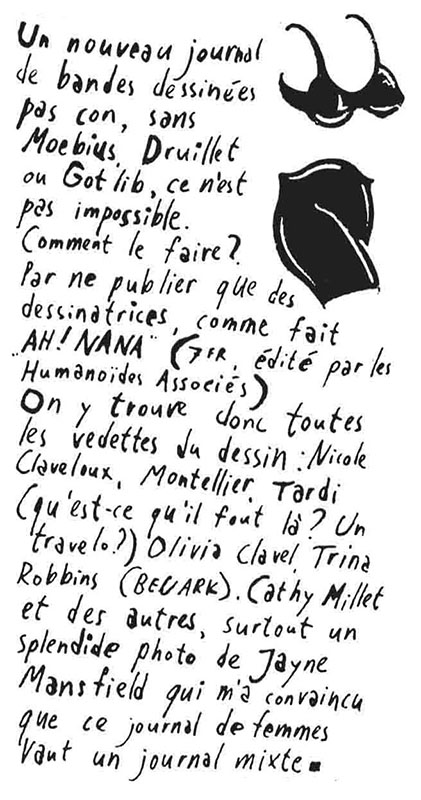 Un nouveau journal
de bandes dessinées
pas con, sans
Moebius, Druillet
ou Gotlib, ce n'est
pas impossible.
Comment le faire?
Par ne publier que des
dessinatrices, comme fait
"AH! NANA" (7FR, édité par les
Humanoïdes Associés)
On y trouve donc toutes
les vedettes du dessin: Nicole
Claveloux, Montellier, Tardi
(qu'est-ce qu'il fout là? Un
travelo?) Olivia Clavel, Trina
Robbins (BEUARK). Cathy Millet
et des autres, surtout un
splendide photo de Jayne
Mansfield qui m'a convaincu
que ce journal de femmes
vaut un journal mixte.